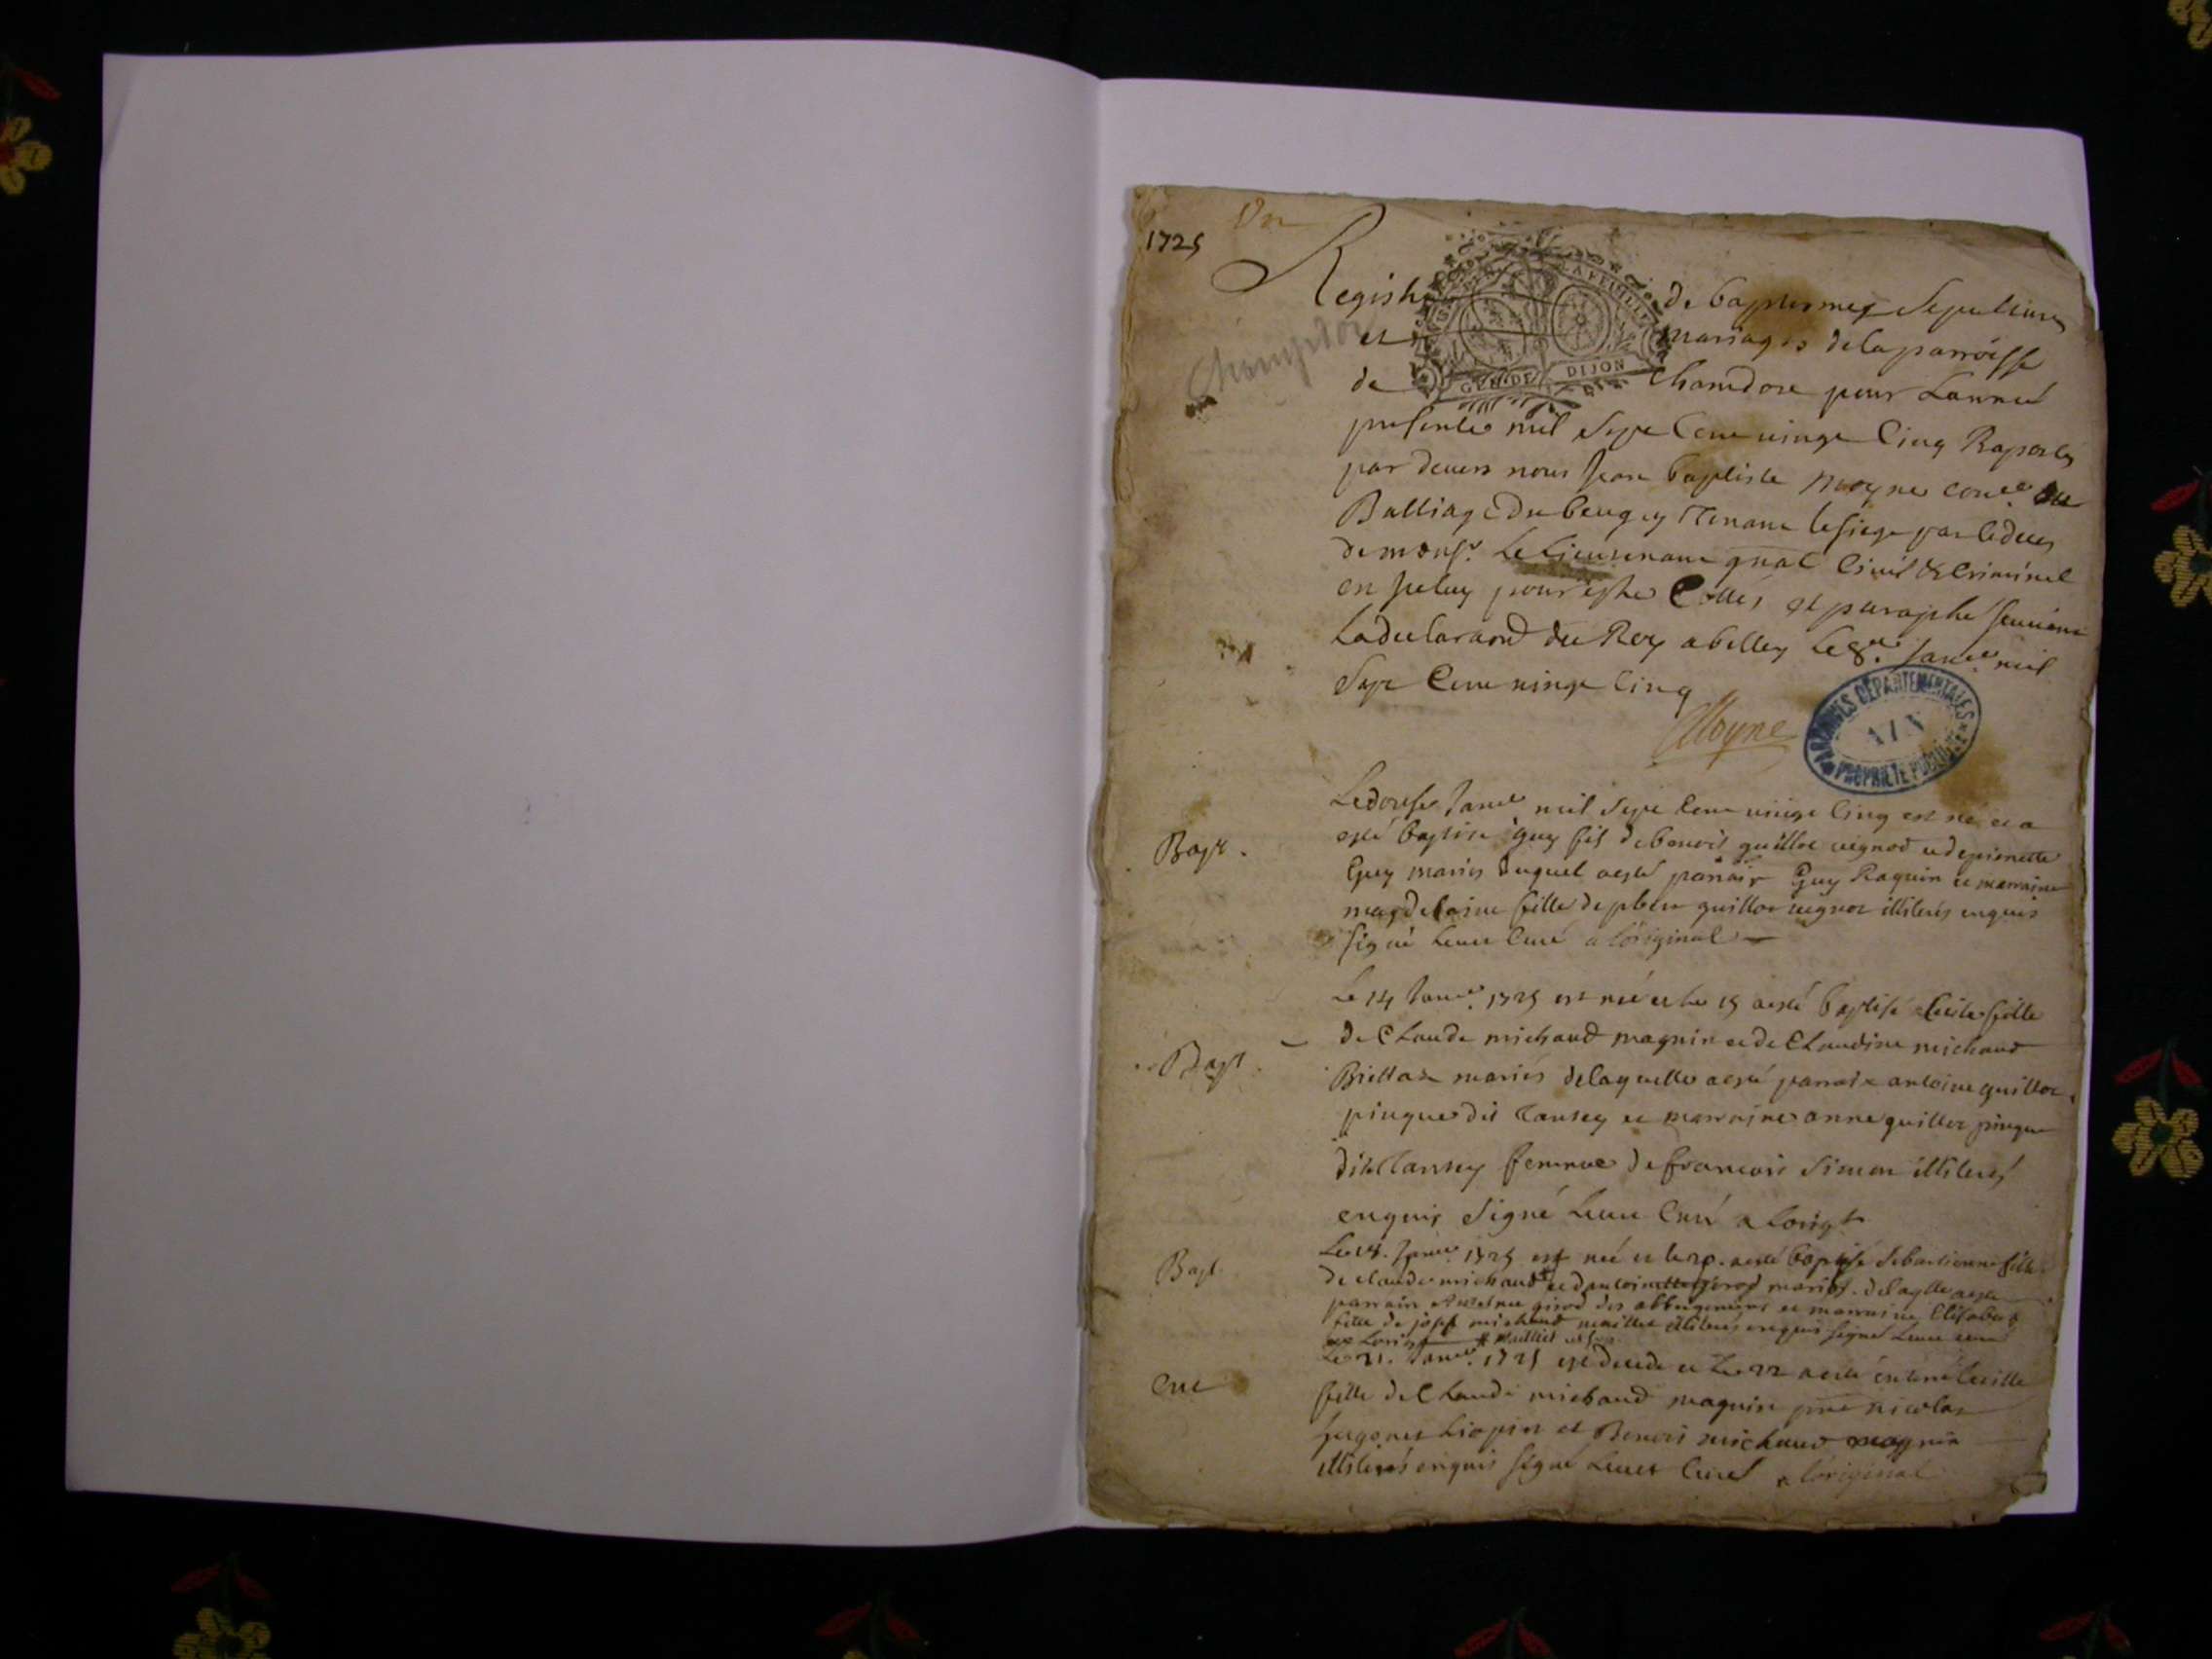 1725
Un
Registre de baptesmes Sepultures
et mariages de la parroisse
Champdor
de Chamdore pour Lanneé
GEN DE DIJON
presente mil Sept Cent vingt Cinq Raportés
par devers nous Jean baptiste Moyne
Balliage du beugey Tenant le siege par le deces
de monsr. Le Lieutenant gnal Civil & Criminel
en Iceluy pour estre Cottés et paraphé suivant
La declaraon du Roy a belley Le 8e. Janer mil
Sept Cent vingt Cinq
Moyne
ARCHIVES DÉPARTEMENTALES
AIN
PROPRIÉTÉ PUBLIQUE
Bapt.
Le douse Janer mil Sept Cent vingt Cinq est né et a
esté baptisé Guy fils de benoit guillot vignod et de pierrette
Guy mariés duquel a esté parrain Guy Raquin et marraine
magdelaine fille de guillot vignot illiterés enquis
signé Curé a loriginal
Bapt.
Le 14 Janer. 1725 est née et le 15 a esté baptisé fille
de Claude michaud magnin et de Claudine michaud
mariés delaquelle a esté parrain antoine guillot
pingue dit Tansey et marraine anne guillot pingue
dit Tansey femme de francois Simon illiterés
enquis signé Curé a
Bapt
Le 18. Janer 1725 est née et le 20. a esté baptisé Sebastienne fille
de claude michaud et dantoinette girod mariés. delaqlle a esté
parrain girod des et marraine Elisabet
fille de michaud illiterés enquis signé curé
Ent
Le 21. Janer. 1725 est decede et Le 22 a esté enterré
fille de Claude michaud magnin nicolas
et Benoit michaud magnin
illiterés enquis signé Curé a loriginal